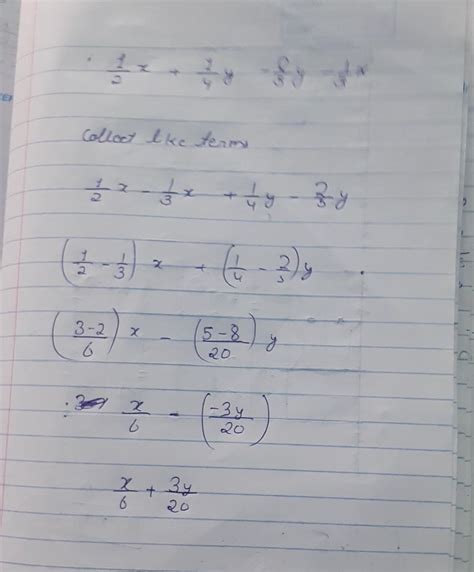 1/2 x + 1/4 y - 2/5 y - 1/3 x
Collect like terms
1/2 x - 1/3 x + 1/4 y - 2/5 y
(1/2 - 1/3) x + (1/4 - 2/5) y
((3-2)/6) x - ((5-8)/20) y
x/6 - (-3y/20)
x/6 + 3y/20